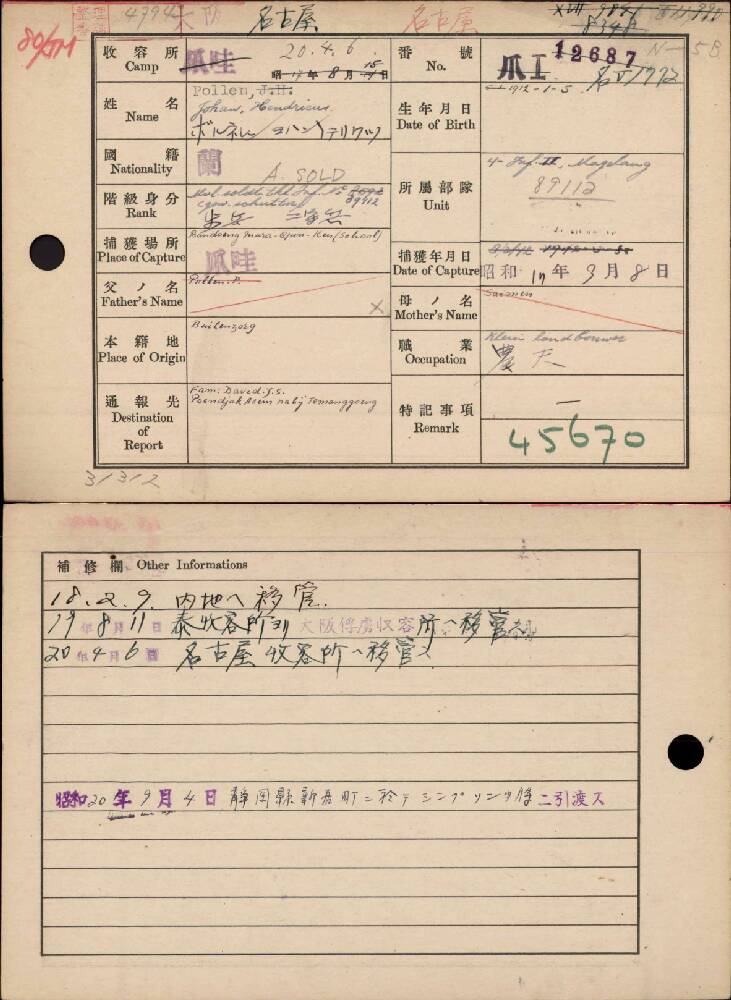 4794 大阪 名古屋 名古屋
8348
N-5B
收容所
Camp
爪哇
20.4.6
昭 年 8 月 15 日
番號
No.
爪I 12687
名I 1772
姓名
Name
Pollen, J.H.
Johan, Hendricus.
生年月日
Date of Birth
1912-1-5
國籍
Nationality
蘭
A. SOLD
所屬部隊
Unit
4- Inf. II, Magelang
89112
階級身分
Rank
89112
捕獲場所
Place of Capture
Bandoeng
(School)
爪哇
捕獲年月日
Date of Capture
昭和 17 年 3 月 8 日
父ノ名
Father's Name
Pollen. P.
母ノ名
Mother's Name
Saimen
本籍地
Place of Origin
Buitenzorg
職業
Occupation
Klein landbouwer
農夫
通報先
Destination of Report
Fam: David. J.S.
Poendjak Asem nabij Temanggoeng
特記事項
Remark
—
45670
31312
補修欄 Other Informations
18.2.9. 内地ヘ移管.
19 年 8 月 11 日 泰收容所ヨリ大阪俘虜収容所ヘ移管
20 年 4 月 6 日 名古屋收容所ヘ移管ス
昭和 20 年 9 月 4 日 静岡縣新居町ニ於テ
ニ引渡ス